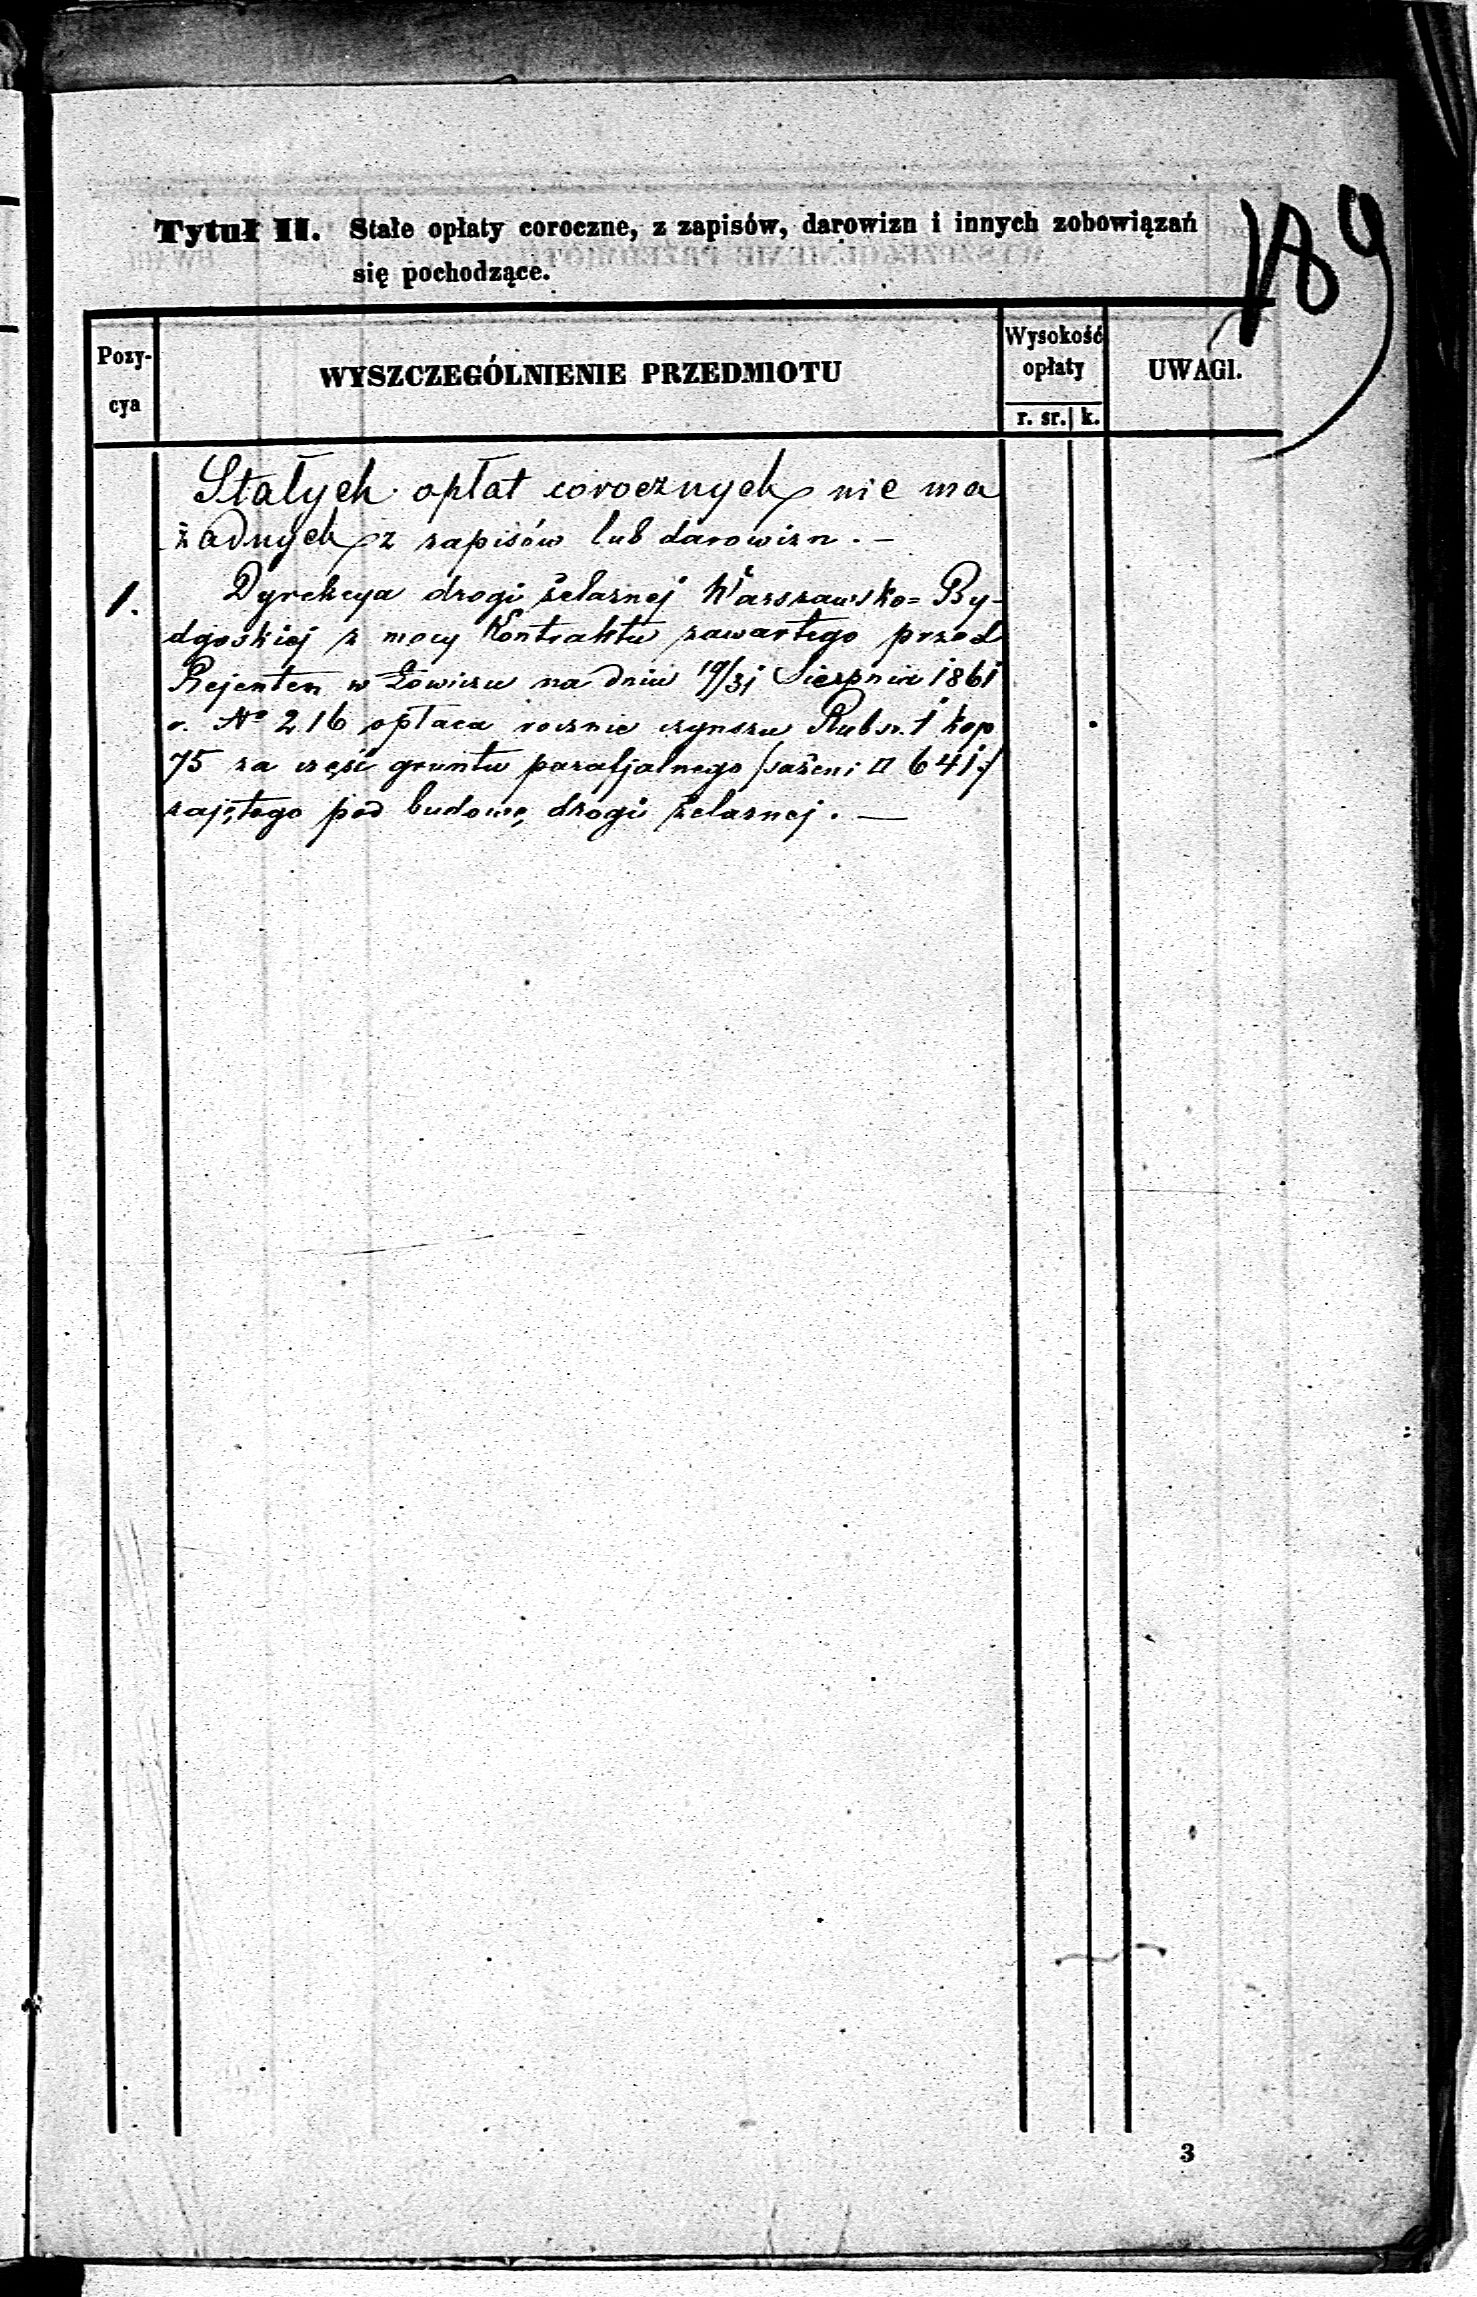 189
Tytuł II. Stałe opłaty coroczne, z zapisów, darowizn i innych zobowiązań
się pochodzące.
Pozy-
cya
WYSZCZEGÓLNIENIE PRZEDMIOTU
Wysokość
opłaty
r. sr. k.
UWAGI.
Stałych opłat corocznych nie ma
żadnych z zapisów lub darowizn. —
1. Dyrekcya drogi żelaznej Warszawsko=By-
dgoskiej z mocy Kontraktu zawartego przed
Rejentem w Łowiczu na dniu 19/31 Sierpnia 1861
r. No 216 opłaca rocznie czynszu Rub sr. 1 kop
75 za część gruntu parafjalnego /sążeni □ 641:/
zajętego pod budowę drogi żelaznej. —
3